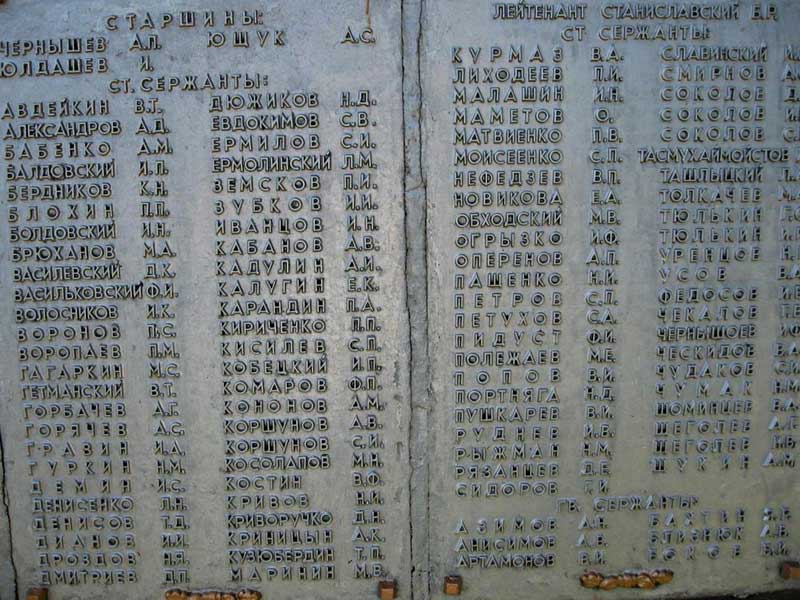 СТАРШИНЫ:
ЧЕРНЫШЕВ А.П. ЮЩУК А.С.
ЮЛДАШЕВ И.
СТ. СЕРЖАНТЫ:
АВДЕЙКИН В.Т. ДЮЖИКОВ Н.Д.
АЛЕКСАНДРОВ А.Д. ЕВДОКИМОВ С.В.
БАБЕНКО А.М. ЕРМИЛОВ С.И.
БАЛДОВСКИЙ И.П. ЕРМОЛИНСКИЙ Л.М.
БЕРДНИКОВ К.Н. ЗЕМСКОВ П.И.
БЛОХИН П.П. ЗУБКОВ И.И.
БОЛДОВСКИЙ И.Н. ИВАНЦОВ И.Н.
БРЮХАНОВ М.А. КАБАНОВ А.В.
ВАСИЛЕВСКИЙ Д.К. КАДУЛИН А.И.
ВАСИЛЬКОВСКИЙ Ф.И. КАЛУГИН Е.К.
ВОЛОСНИКОВ И.К. КАРАНДИН П.А.
ВОРОНОВ П.С. КИРИЧЕНКО П.П.
ВОРОПАЕВ П.М. КИСИЛЕВ С.П.
ГАГАРКИН М.С. КОБЕЦКИЙ И.П.
ГЕТМАНСКИЙ В.Т. КОМАРОВ Ф.П.
ГОРБАЧЕВ А.Г. КОНОНОВ А.М.
ГОРЯЧЕВ А.С. КОРШУНОВ А.В.
ГРАЗИН И.А. КОРШУНОВ С.И.
ГУРКИН Н.М. КОСОЛАПОВ М.Н.
ДЕМИН И.С. КОСТИН В.Ф.
ДЕНИСЕНКО Л.Н. КРИВОВ Н.И.
ДЕНИСОВ Т.Д. КРИВОРУЧКО Д.Н.
ДИАНОВ И.И. КРИНИЦЫН А.К.
ДРОЗДОВ Н.Я. КУЗЮБЕРДИН Т.П.
ДМИТРИЕВ Д.П. МАРИНИН М.В.
ЛЕЙТЕНАНТ СТАНИСЛАВСКИЙ Б.Р.
СТ. СЕРЖАНТЫ:
КУРМАЗ В.А. СЛАВИНСКИЙ
ЛИХОДЕЕВ П.И. СМИРНОВ
МАЛАШИН И.Н. СОКОЛОВ
МАМЕТОВ О. СОКОЛОВ
МАТВИЕНКО П.В. СОКОЛОВ
МОИСЕЕНКО С.П. ТАСМУХАЙМОЙСТОВ
НЕФЕДЗЕВ В.П. ТАШЛЫЦКИЙ
НОВИКОВА Е.А. ТОЛКАЧЕВ
ОБХОДСКИЙ М.В. ТЮЛЬКИН
ОГРЫЗКО И.Ф. ТЮЛЬКИН
ОПЕРЕНОВ А.П. УРЕНЦОВ
ПАЩЕНКО Н.И. УСОВ
ПЕТРОВ С.П. ФЕДОСОВ
ПЕТУХОВ С.А. ЧЕКАЛОВ
ПИДУСТ Ф.И. ЧЕРНЫШОЕВ
ПОЛЕЖАЕВ М.Е. ЧЕСКИДОВ
ПОПОВ В.И. ЧУДАКОВ
ПОРТНЯГА Н.Д. ЧУМАК
ПУШКАРЕВ В.И. ШОМИНЦЕВ
РУДНЕВ И.В. ЩЕГОЛЕВ
РЫЖМАН Н.М. ЩЕГОЛЕВ
РЯЗАНЦЕВ Д.Е. ЩУКИН
СИДОРОВ Г.И.
ГВ. СЕРЖАНТЫ:
АЗИМОВ А.Н. БАХТИН
АНИСИМОВ А.В. БЛИЗНЮК
АРТАМОНОВ В.И. БОКОВ